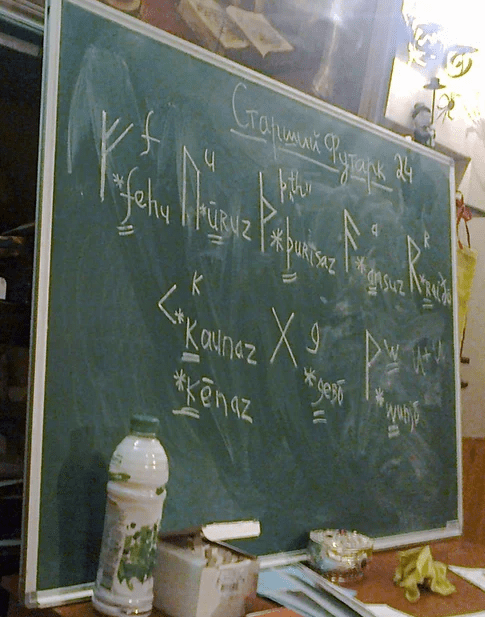 Старший Футарк 24
ᚠ f ᚢ u ᚦ þ "th" ᚨ a ᚱ R
*fehu *ūruz *þurisaz *ansuz *Raiđō
ᚲ K ᚷ g ᚹ w u+u
*Kaunaz *gebō *wunjō
*Kēnaz